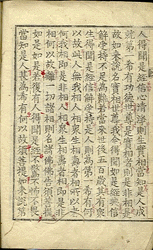 人得聞是經信心清淨則生實相當知是人成
就第一希有功德世尊是實相者則是非相是
故如來說名實相世尊我今得聞如是經典信
解受持不足為難若當來世後五百歲其有眾
生得聞是經信解受持是人則為第一希有何
以故此人無我相人相眾生相壽者相所以者
何我相即是非相人相眾生相壽者相即是非
相何以故離一切諸相則名諸佛佛告須菩提
如是如是若復有人得聞是經不驚不怖不畏
當知是人甚為希有何以故須菩提如來說第